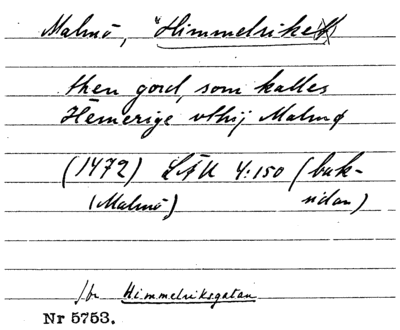 Malmö, "Himmelriket"
then gord, som kalles
Hemerige vthij Malmø
(1472) LÄU 4:150 (bak-
(Malmö) sidan)
jfr Himmelriksgatan
Nr 5753.